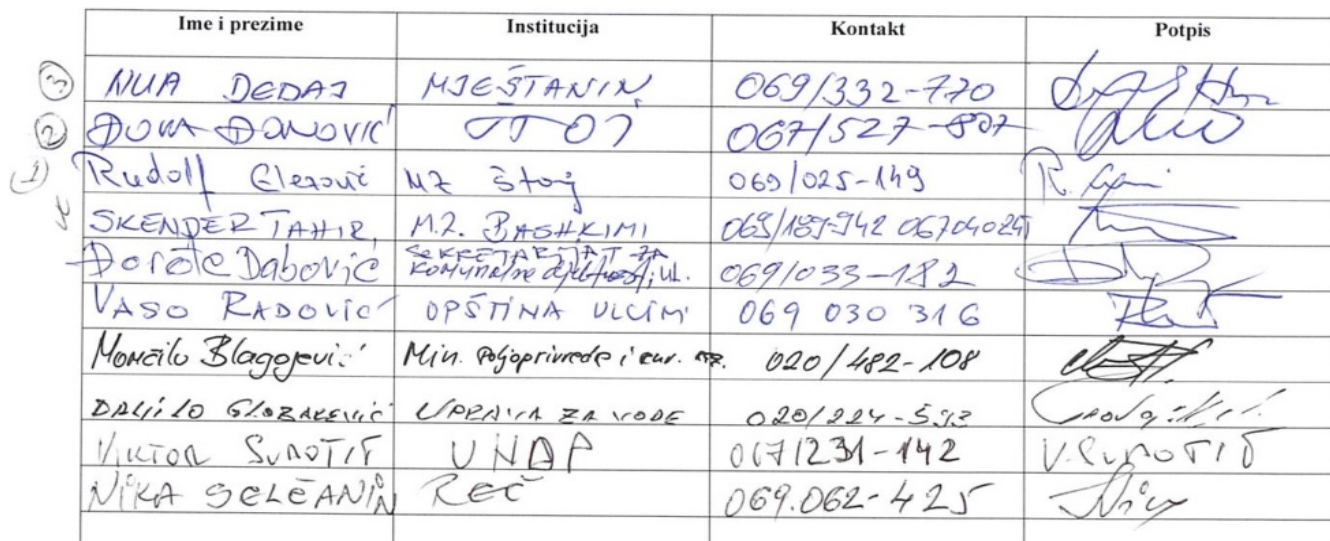 Ime i prezime Institucija Kontakt Potpis
3 NUA DEDAJ MJEŠTANIN 069/332-770
2 ĐOKA ĐONOVIĆ 067/527-807
1 Rudolf MZ Štoj 069/025-149 R.
SKENDER TAHIR, M.Z. BASHKIMI 069/189-942
Đorđe Dabović SEKRETARIJAT ZA komunalne djelatnosti, UL. 069/033-182
VASO RADOVIĆ OPŠTINA ULCINJ 069 030 316
Momčilo Blagojević Min. poljoprivrede i rur. raz. 020/482-108
UPRAVA ZA VODE 020/224-593
VIKTOR SUBOTIĆ UNDP 067/231-142 V. SUBOTIĆ
NIKA GELČANIN REČ 069.062-425